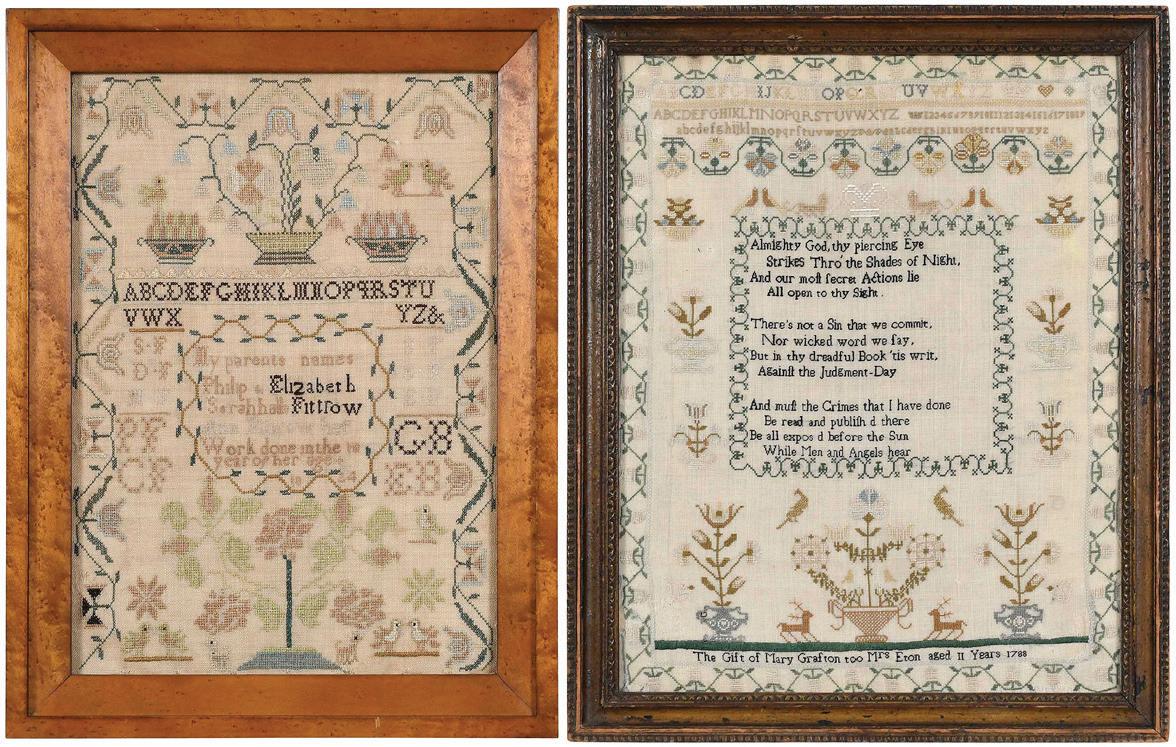 ABCDEFGHIKLMNOPQRSTU
VWX YZ&
S·F
D·F
My parents names
Philip & Elizabeth
Sarahhan Fittrow
Work done in the
year of her age
PF GB
CF EB
CD IJ OP UV
ABCDEFGHIJKLMNOPQRSTUVWXYZ
abcdefghijklmnopqrſstuvwxyz
Almighty God, thy piercing Eye
Strikes Thro' the Shades of Night,
And our moſt ſecret Actions lie
All open to thy Sight.
There's not a Sin that we commit,
Nor wicked word we ſay,
But in thy dreadful Book 'tis writ,
Againſt the Judgment-Day
And muſt the Crimes that I have done
Be read and publiſh d there
Be all expos d before the Sun
While Men and Angels hear
The Gift of Mary Grafton too Mrs Eton aged 11 Years 1788